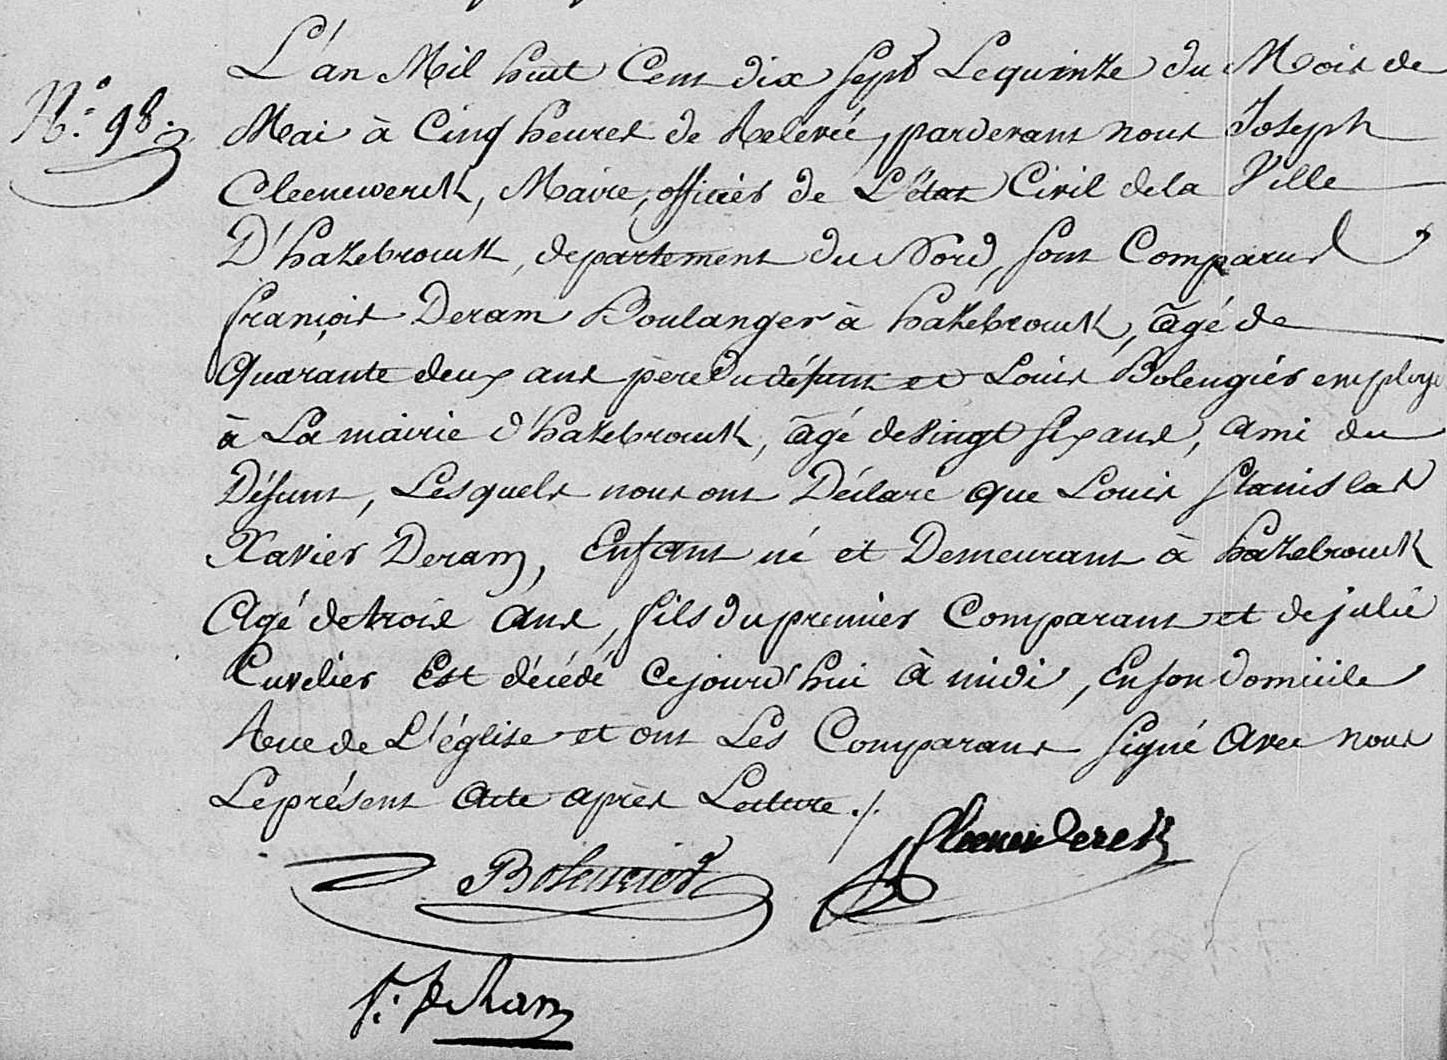 N.° 98.
L'an Mil huit Cent dix Sept Le quinze du Mois de
Mai à Cinq heures de Relevée, pardevant nous Joseph
Cleenewerck, Maire, officier de L'état Civil de la Ville
D'hazebrouck, departement du Nord, sont Comparus
françois Deram Boulanger à hazebrouck, agé de
Quarante deux ans père du défunt et Louis Bolengier employé
à La mairie d'hazebrouck, agé de Vingt six ans, ami du
Défunt, Lesquels nous ont Déclaré que Louis Stanislas
Xavier Deram, Enfant né et Demeurant à hazebrouck
Agé de trois ans, fils du premier Comparant et de julie
Cuvelier Est décédé Cejourd'hui à midi, En son domicile
Rue de L'église et ont Les Comparans signé avec nous
Le présent acte après Lecture ./.
Cleenewerck
Bolengier
f: De Ram